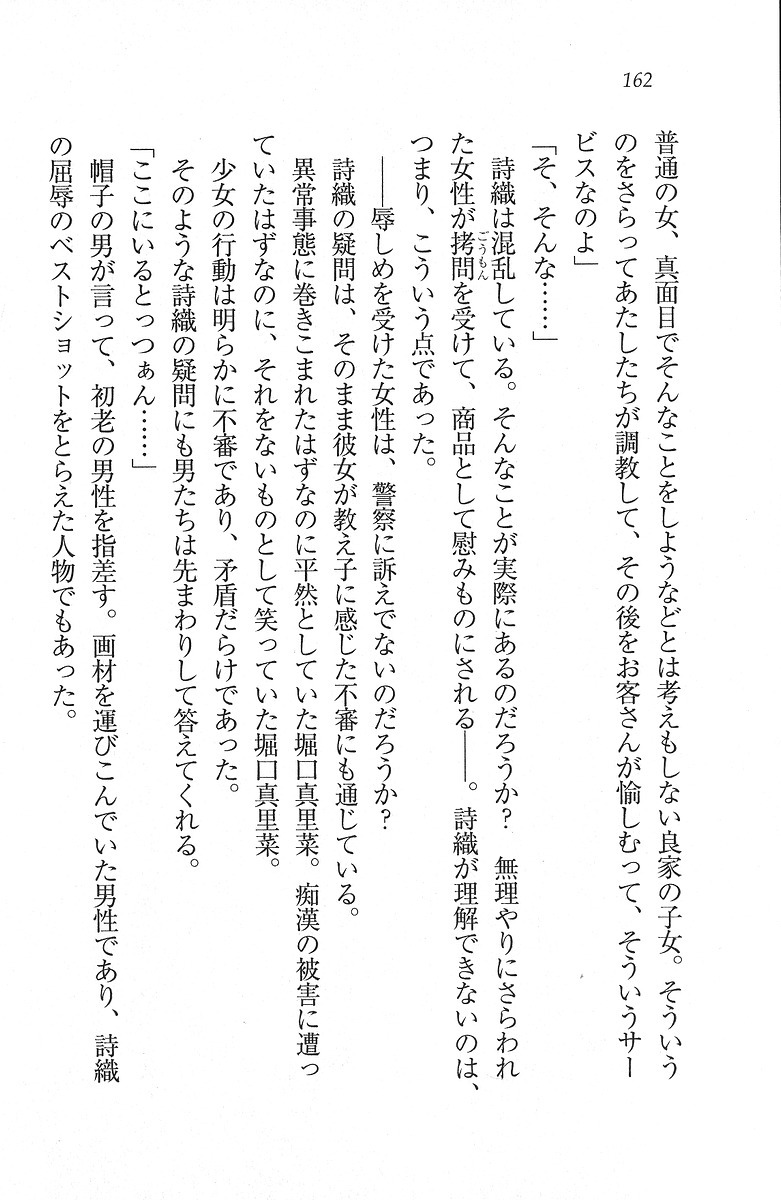 162
普通の女、真面目でそんなことをしようなどとは考えもしない良家の子女。そういう
のをさらってあたしたちが調教して、その後をお客さんが愉しむって、そういうサー
ビスなのよ」
「そ、そんな……」
詩織は混乱している。そんなことが実際にあるのだろうか？　無理やりにさらわれ
た女性が拷問を受けて、商品として慰みものにされる――。詩織が理解できないのは、
ごうもん
つまり、こういう点であった。
――辱しめを受けた女性は、警察に訴えでないのだろうか？
詩織の疑問は、そのまま彼女が教え子に感じた不審にも通じている。
異常事態に巻きこまれたはずなのに平然としていた堀口真里菜。痴漢の被害に遭っ
ていたはずなのに、それをないものとして笑っていた堀口真里菜。
少女の行動は明らかに不審であり、矛盾だらけであった。
そのような詩織の疑問にも男たちは先まわりして答えてくれる。
「ここにいるとっつぁん……」
帽子の男が言って、初老の男性を指差す。画材を運びこんでいた男性であり、詩織
の屈辱のベストショットをとらえた人物でもあった。